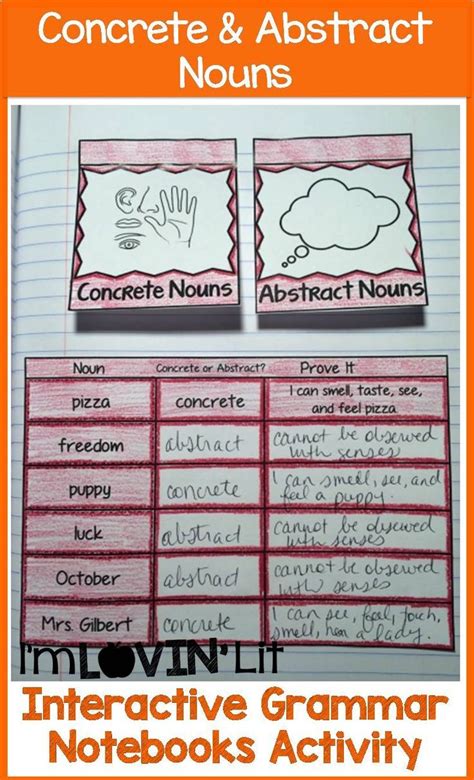 Concrete & Abstract
Nouns
Concrete Nouns
Abstract Nouns
Noun
Concrete or Abstract?
Prove It
pizza
concrete
I can smell, taste, see,
and feel pizza
freedom
abstract
cannot be observed
with senses
puppy
concrete
I can smell, see, and
feel a puppy.
luck
abstract
cannot be observed
with senses
October
abstract
cannot be observed
with senses
Mrs. Gilbert
concrete
I can see, feel, touch,
smell, hear a lady.
I'm LOVIN' Lit
Interactive Grammar
Notebooks Activity